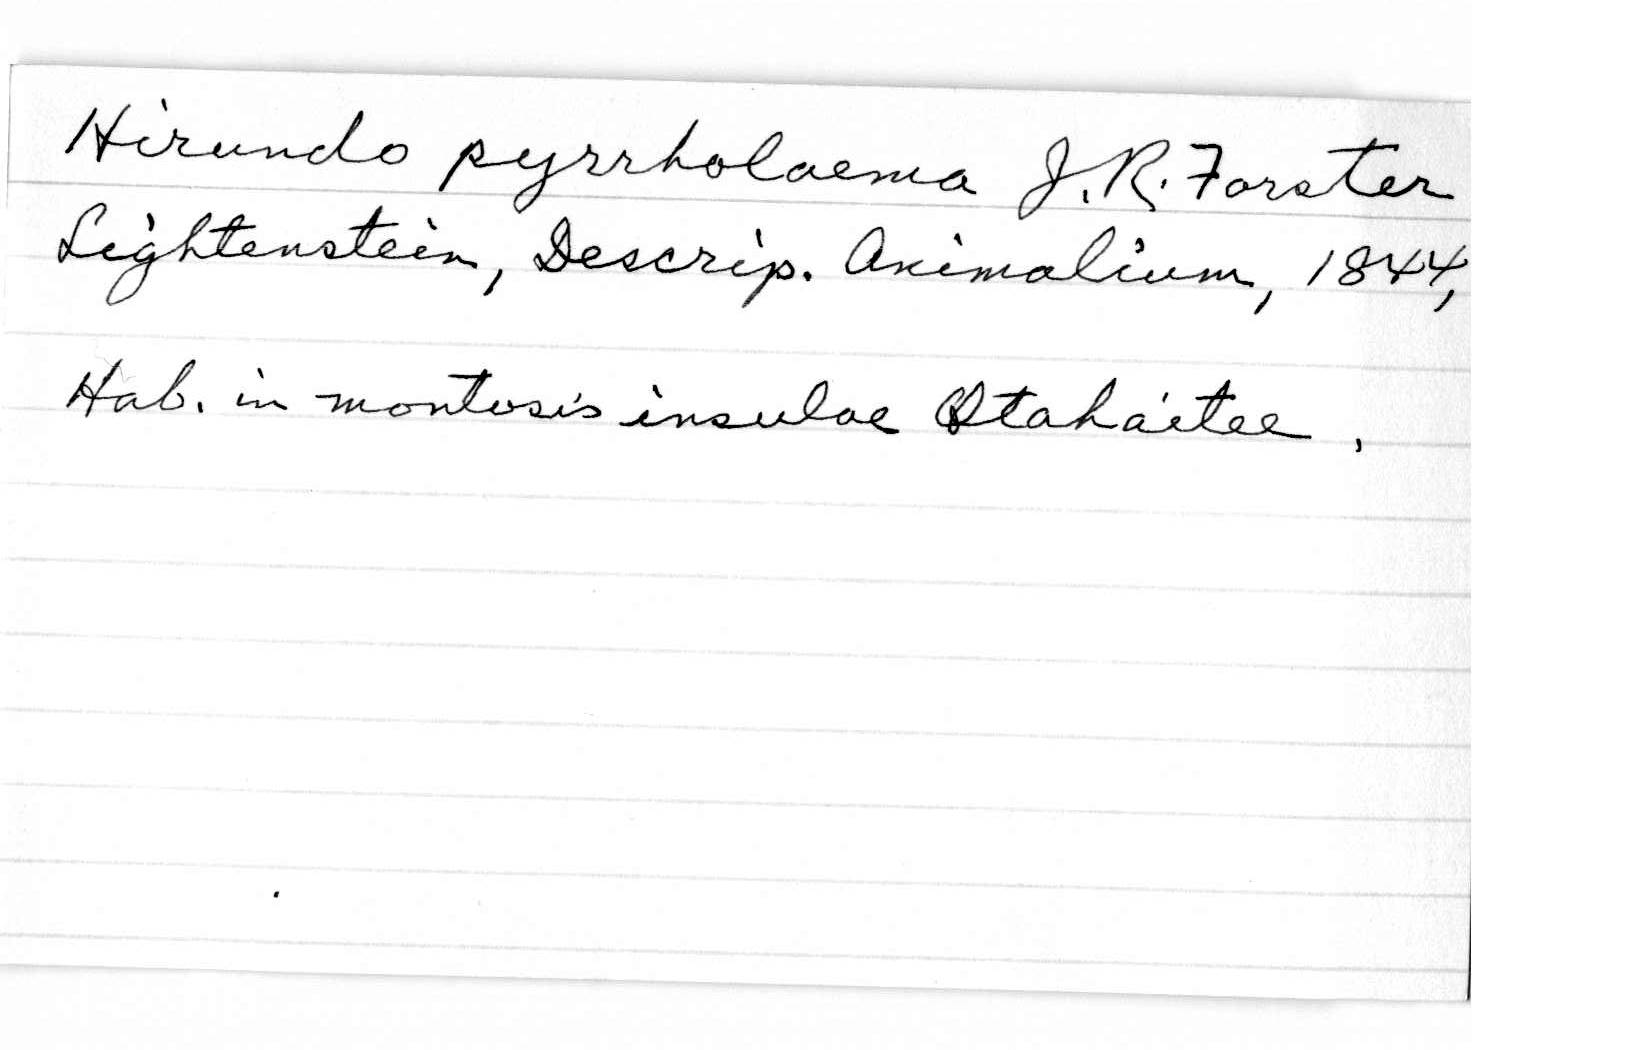 Hirundo pyrrholaema J. R. Forster
Lightenstein, Descrip. Animalium, 1844,
Hab. in montosis insulae Otahaitee,